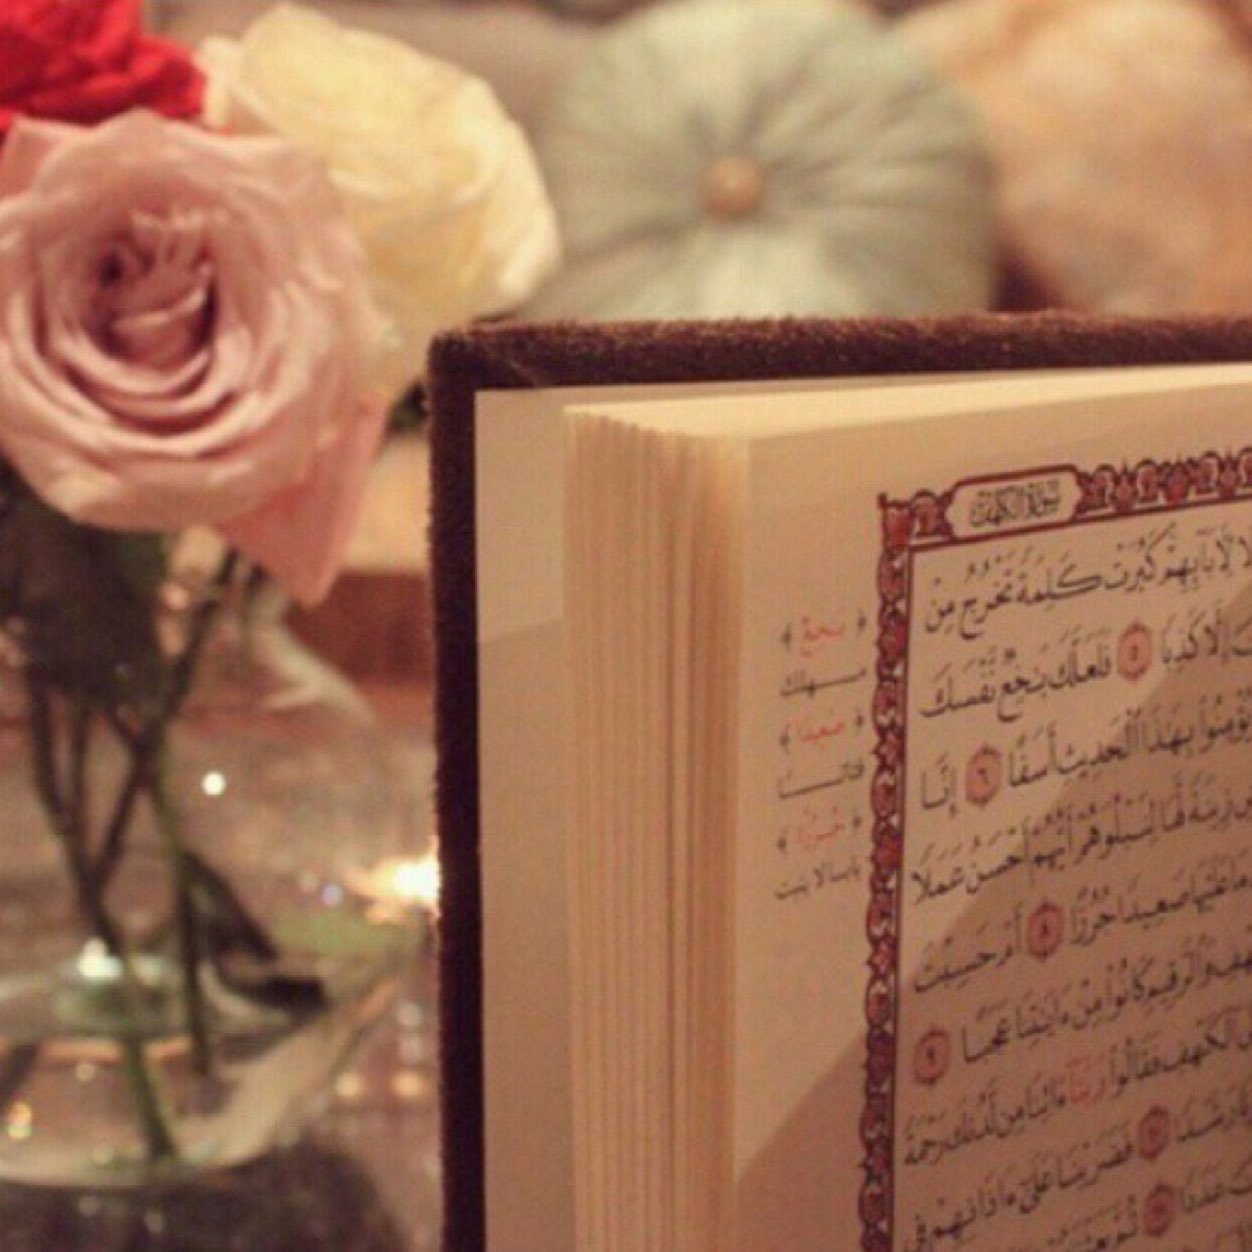 سورة الكهف
لَا لِآبَائِهِمْ كَبُرَتْ كَلِمَةً تَخْرُجُ مِنْ
إِلَّا كَذِبًا ٥ فَلَعَلَّكَ بَاخِعٌ نَّفْسَكَ
يُؤْمِنُوا بِهَٰذَا الْحَدِيثِ أَسَفًا ٦ إِنَّا
زِينَةً لَّهَا لِنَبْلُوَهُمْ أَيُّهُمْ أَحْسَنُ عَمَلًا
مَا عَلَيْهَا صَعِيدًا جُرُزًا ٨ أَمْ حَسِبْتَ
وَالرَّقِيمِ كَانُوا مِنْ ءَايَاتِنَا عَجَبًا ٩
الْكَهْفِ فَقَالُوا رَبَّنَا ءَاتِنَا مِن لَّدُنكَ رَحْمَةً
رَشَدًا ١٠ فَضَرَبْنَا عَلَىٰ ءَاذَانِهِمْ فِي
عَدَدًا ١١ ثُمَّ
﴿بَاخِعٌ﴾
مهلك
﴿صعيدًا﴾
﴿جُرُزًا﴾
يابسا لا ينبت